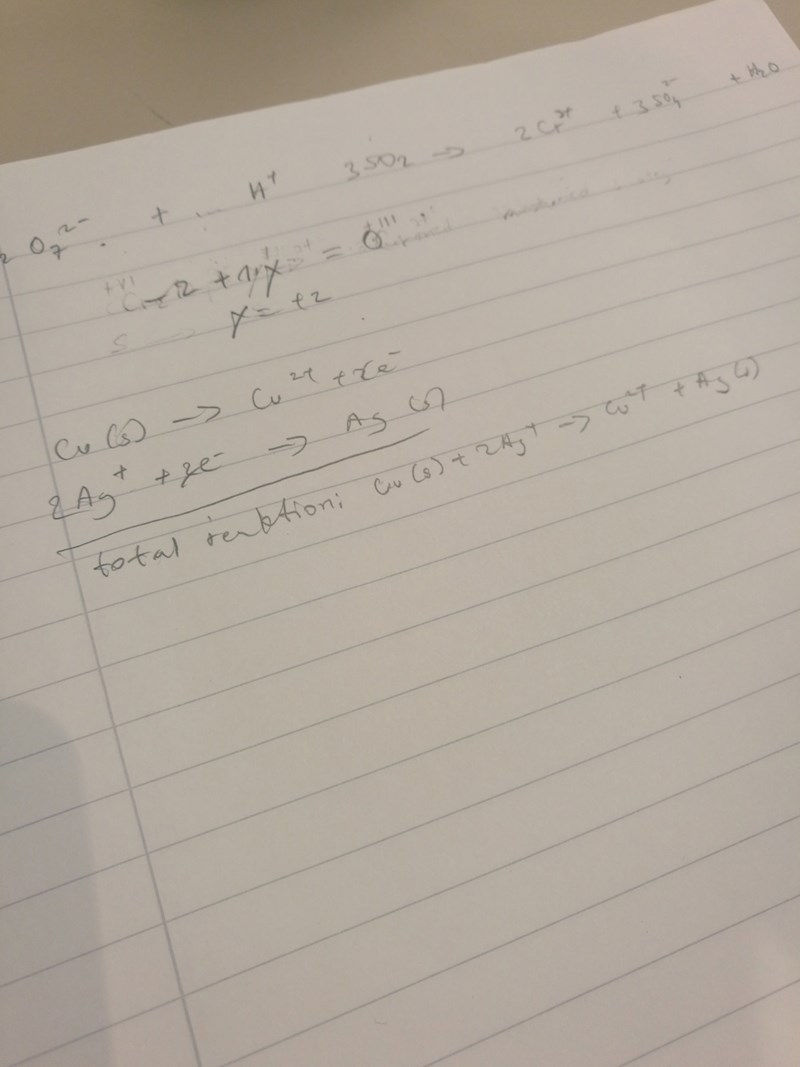 O₇²⁻ + H⁺ 3SO₂ → 2Cr³⁺ + 3SO₄²⁻ + H₂O
= 0
x = +2
Cu (s) → Cu²⁺ + 2e⁻
2Ag⁺ + 2e⁻ → Ag (s)
total reaktion: Cu (s) + 2Ag⁺ → Cu²⁺ + Ag (s)